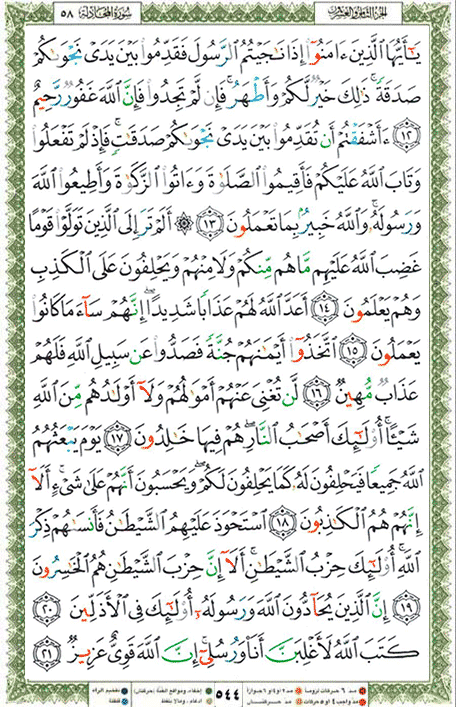 الجزء الثامن والعشرون سورة المجادلة ٥٨
يَـٰٓأَيُّهَا ٱلَّذِينَ ءَامَنُوٓا۟ إِذَا نَـٰجَيْتُمُ ٱلرَّسُولَ فَقَدِّمُوا۟ بَيْنَ يَدَىْ نَجْوَىٰكُمْ
صَدَقَةً ۚ ذَٰلِكَ خَيْرٌ لَّكُمْ وَأَطْهَرُ ۚ فَإِن لَّمْ تَجِدُوا۟ فَإِنَّ ٱللَّهَ غَفُورٌ رَّحِيمٌ
١٢ ءَأَشْفَقْتُمْ أَن تُقَدِّمُوا۟ بَيْنَ يَدَىْ نَجْوَىٰكُمْ صَدَقَـٰتٍ ۚ فَإِذْ لَمْ تَفْعَلُوا۟
وَتَابَ ٱللَّهُ عَلَيْكُمْ فَأَقِيمُوا۟ ٱلصَّلَوٰةَ وَءَاتُوا۟ ٱلزَّكَوٰةَ وَأَطِيعُوا۟ ٱللَّهَ
وَرَسُولَهُۥ ۚ وَٱللَّهُ خَبِيرٌۢ بِمَا تَعْمَلُونَ ١٣ ۞ أَلَمْ تَرَ إِلَى ٱلَّذِينَ تَوَلَّوْا۟ قَوْمًا
غَضِبَ ٱللَّهُ عَلَيْهِم مَّا هُم مِّنكُمْ وَلَا مِنْهُمْ وَيَحْلِفُونَ عَلَى ٱلْكَذِبِ
وَهُمْ يَعْلَمُونَ ١٤ أَعَدَّ ٱللَّهُ لَهُمْ عَذَابًا شَدِيدًا ۖ إِنَّهُمْ سَآءَ مَا كَانُوا۟
يَعْمَلُونَ ١٥ ٱتَّخَذُوٓا۟ أَيْمَـٰنَهُمْ جُنَّةً فَصَدُّوا۟ عَن سَبِيلِ ٱللَّهِ فَلَهُمْ
عَذَابٌ مُّهِينٌ ١٦ لَّن تُغْنِىَ عَنْهُمْ أَمْوَٰلُهُمْ وَلَآ أَوْلَـٰدُهُم مِّنَ ٱللَّهِ
شَيْـًٔا ۚ أُو۟لَـٰٓئِكَ أَصْحَـٰبُ ٱلنَّارِ ۖ هُمْ فِيهَا خَـٰلِدُونَ ١٧ يَوْمَ يَبْعَثُهُمُ
ٱللَّهُ جَمِيعًا فَيَحْلِفُونَ لَهُۥ كَمَا يَحْلِفُونَ لَكُمْ ۖ وَيَحْسَبُونَ أَنَّهُمْ عَلَىٰ شَىْءٍ ۚ أَلَآ
إِنَّهُمْ هُمُ ٱلْكَـٰذِبُونَ ١٨ ٱسْتَحْوَذَ عَلَيْهِمُ ٱلشَّيْطَـٰنُ فَأَنسَىٰهُمْ ذِكْرَ
ٱللَّهِ ۚ أُو۟لَـٰٓئِكَ حِزْبُ ٱلشَّيْطَـٰنِ ۚ أَلَآ إِنَّ حِزْبَ ٱلشَّيْطَـٰنِ هُمُ ٱلْخَـٰسِرُونَ
١٩ إِنَّ ٱلَّذِينَ يُحَآدُّونَ ٱللَّهَ وَرَسُولَهُۥٓ أُو۟لَـٰٓئِكَ فِى ٱلْأَذَلِّينَ ٢٠
كَتَبَ ٱللَّهُ لَأَغْلِبَنَّ أَنَا۠ وَرُسُلِىٓ ۚ إِنَّ ٱللَّهَ قَوِىٌّ عَزِيزٌ ٢١
٥٤٤